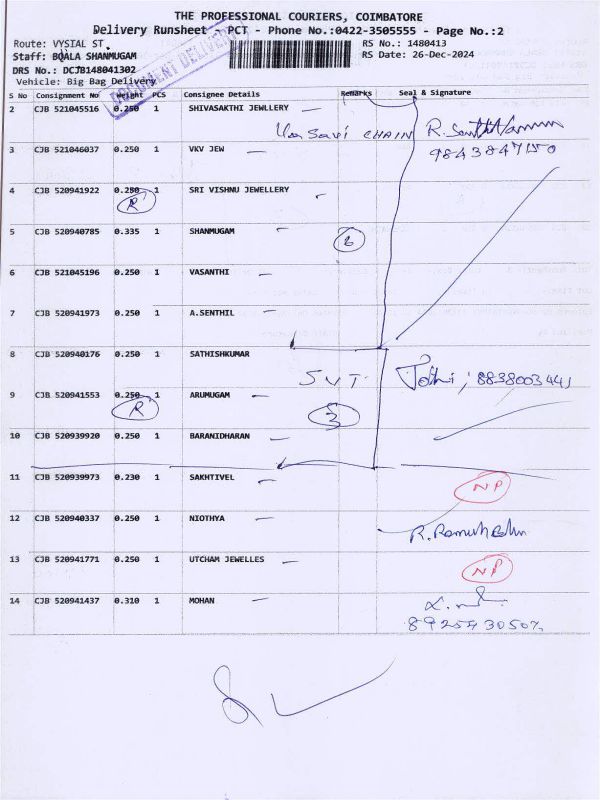 THE PROFESSIONAL COURIERS, COIMBATORE
Delivery Runsheet - PCT - Phone No.:0422-3505555 - Page No.:2
Route: VYSIAL ST. RS No.: 1480413
Staff: BOALA SHANMUGAM RS Date: 26-Dec-2024
DRS No.: DCJB148041302
Vehicle: Big Bag Delivery
DOCUMENT DELIVERY
S No Consignment No Weight PCS Consignee Details Remarks Seal & Signature
2 CJB 521045516 0.250 1 SHIVASAKTHI JEWLLERY
Vasavi CHAIN R.
9843847150
3 CJB 521046037 0.250 1 VKV JEW
4 CJB 520941922 0.250 1 SRI VISHNU JEWELLERY
R
5 CJB 520940785 0.335 1 SHANMUGAM
6
6 CJB 521045196 0.250 1 VASANTHI
7 CJB 520941973 0.250 1 A.SENTHIL
8 CJB 520940176 0.250 1 SATHISHKUMAR
SVT Jothi, 8838003441
9 CJB 520941553 0.250 1 ARUMUGAM
R 3
10 CJB 520939920 0.250 1 BARANIDHARAN
11 CJB 520939973 0.230 1 SAKHTIVEL
NP
12 CJB 520940337 0.250 1 NIOTHYA
13 CJB 520941771 0.250 1 UTCHAM JEWELLES
NP
14 CJB 520941437 0.310 1 MOHAN